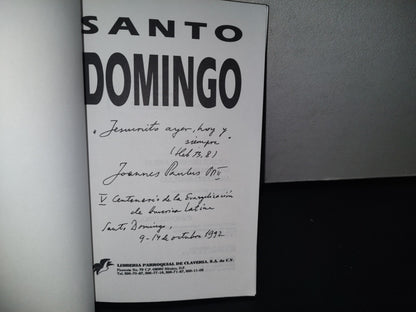 SANTO
DOMINGO
"Jesucristo ayer, hoy y
siempre
(Heb 13, 8)
Joannes Paulus PP II
V Centenario de la Evangelización
de América Latina
Santo Domingo,
9-14 de octubre 1992
LIBRERIA PARROQUIAL DE CLAVERIA, S.A. de C.V.